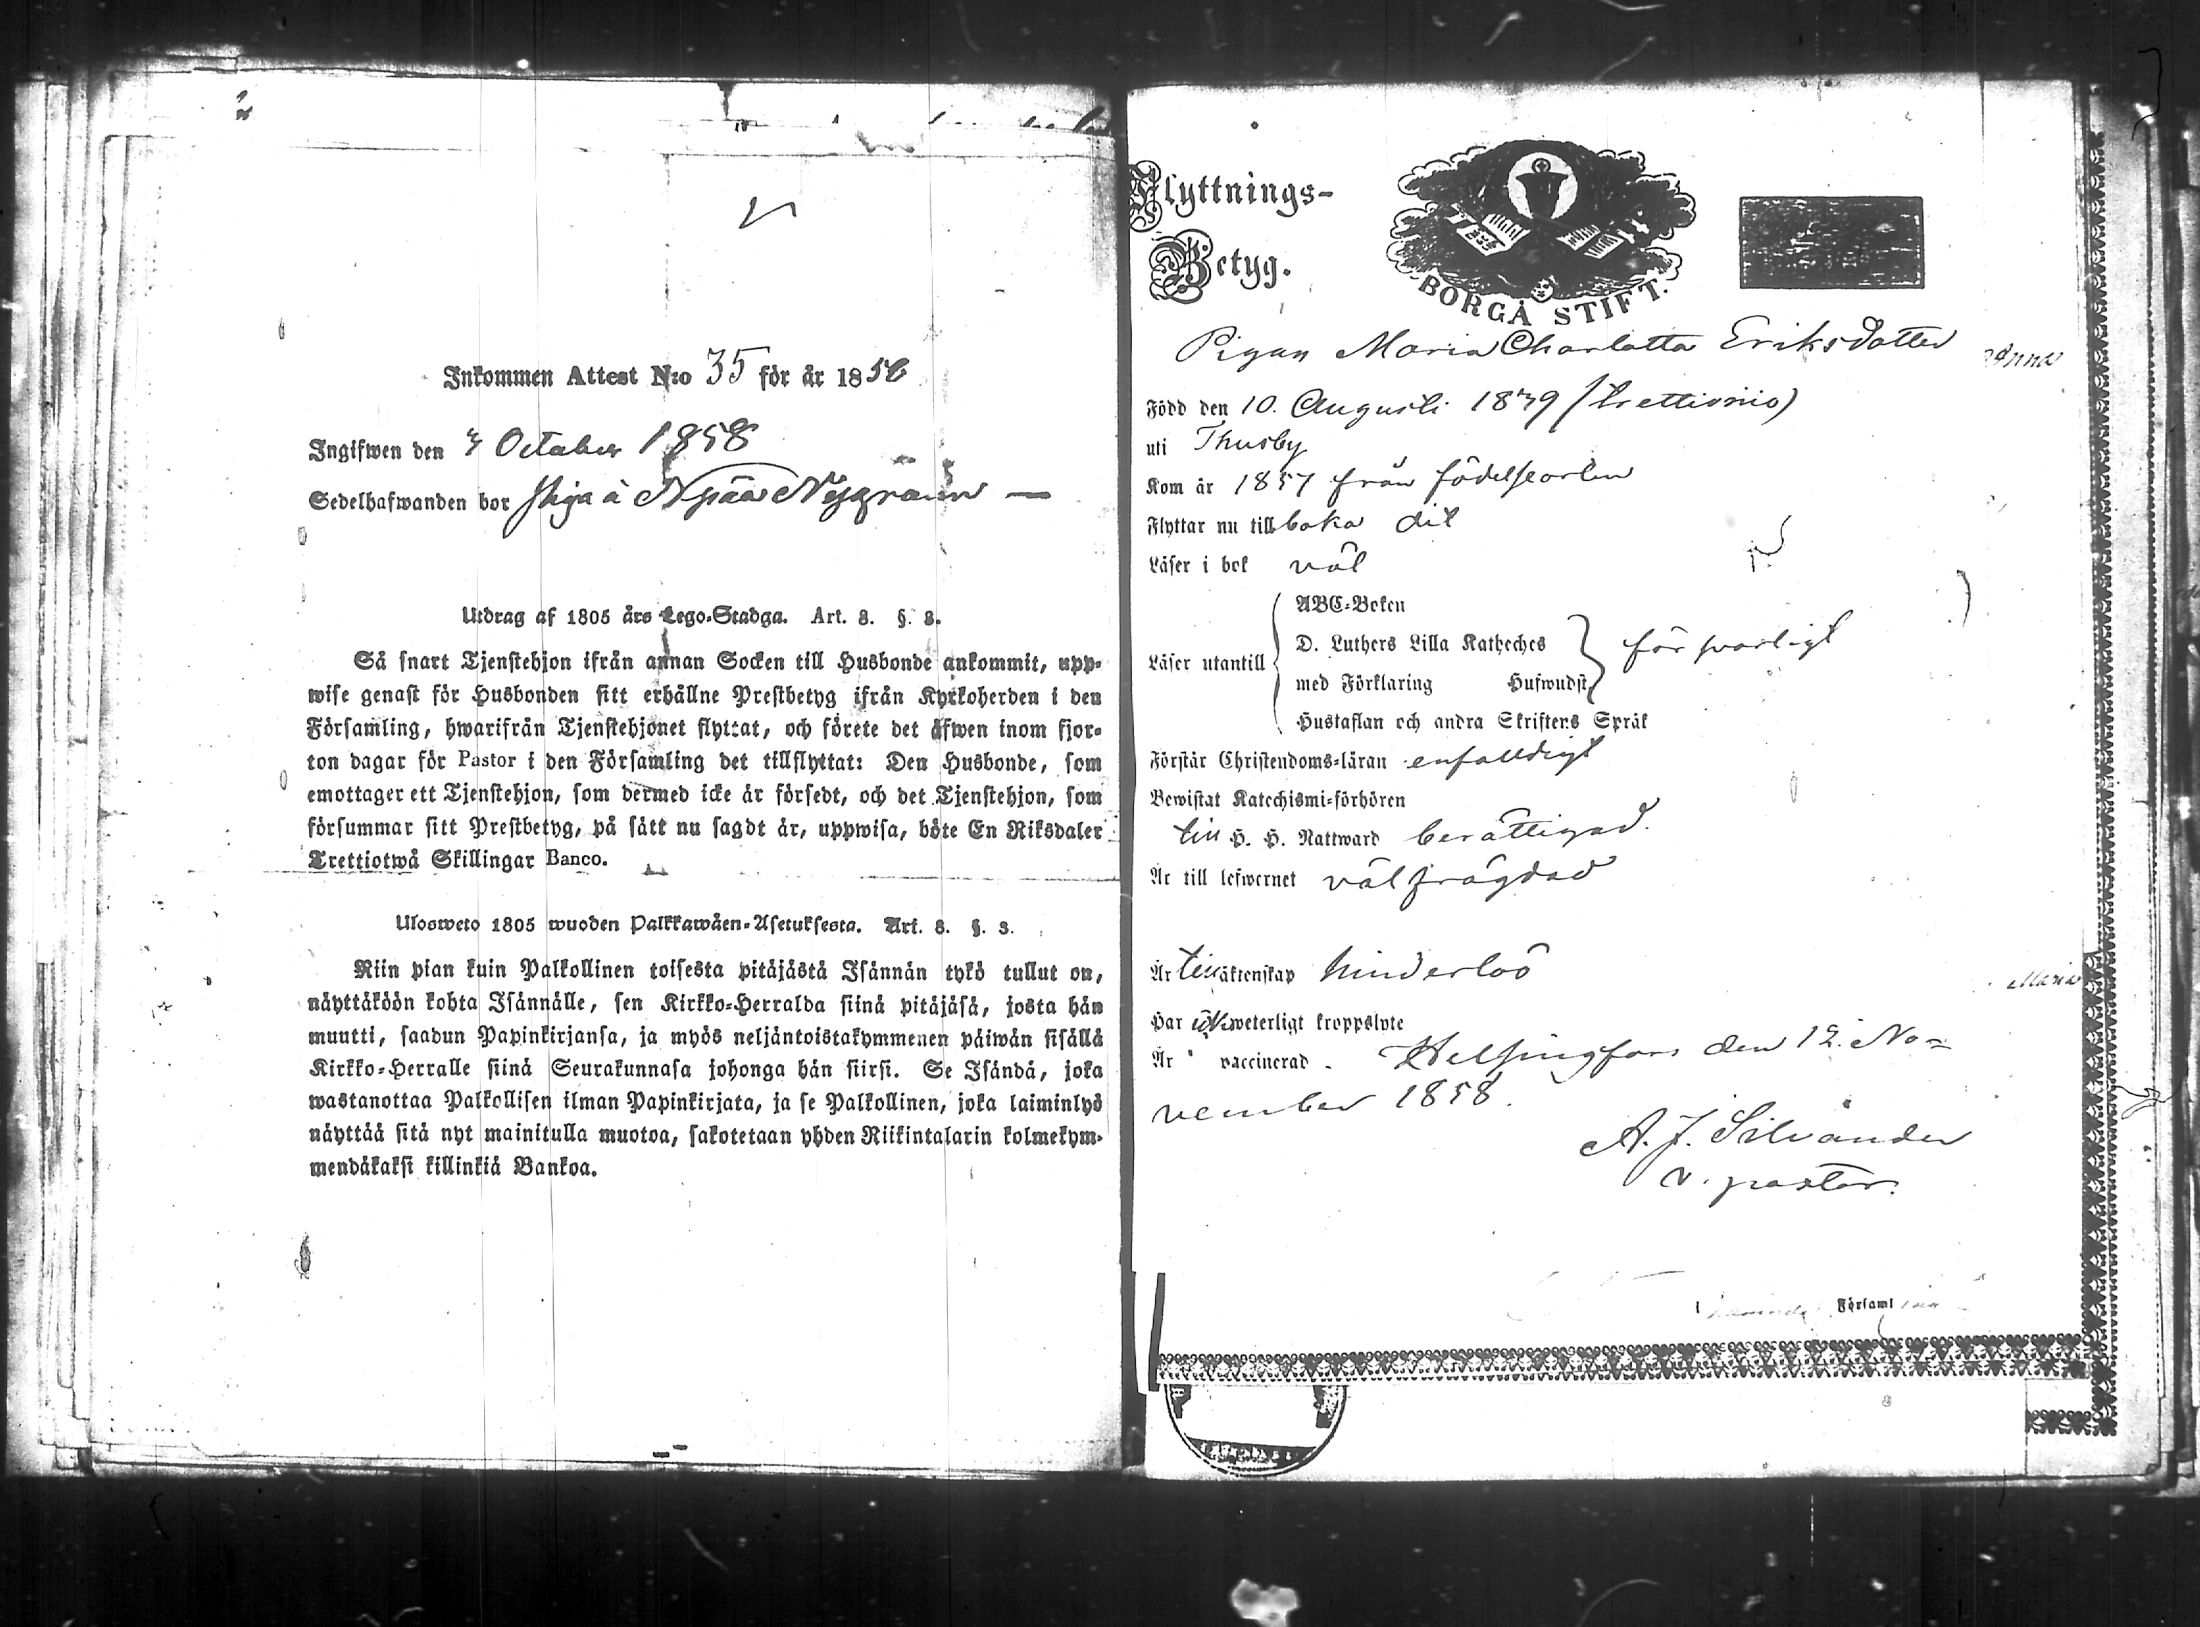 Inkommen Attest N:o 35 för år 1858
Ingifwen den 7 October 1858
Sedelhafwanden bor piga å
Utdrag af 1805 års Lego-Stadga. Art. 3. §. 3.
Så snart Tjenstehjon ifrån annan Socken till Husbonde ankommit, upp-
wise genast för Husbonden sitt erhållne Prestbetyg ifrån Kyrkoherden i den
Församling, hwarifrån Tjenstehjonet flyttat, och förete det äfwen inom fjor-
ton dagar för Pastor i den Församling det tillflyttat: Den Husbonde, som
emottager ett Tjenstehjon, som dermed icke är försedt, och det Tjenstehjon, som
försummar sitt Prestbetyg, på sätt nu sagdt är, uppwisa, böte En Riksdaler
Trettiotwå Skillingar Banco.
Ulosweto 1805 wuoden Palkkawäen-Asetuksesta. Art. 3. §. 3.
Niin pian kuin Palkollinen toisesta pitäjästä Isännän tykö tullut on,
näyttäköön kohta Isännälle, sen Kirkko-Herralda siinä pitäjäsä, josta hän
muutti, saadun Papinkirjansa, ja myös neljäntoistakymmenen päiwän sisällä
Kirkko-Herralle siinä Seurakunnasa johonga hän siirsi. Se Isändä, joka
wastanottaa Palkollisen ilman Papinkirjata, ja se Palkollinen, joka laiminlyö
näyttää sitä nyt mainitulla muotoa, sakotetaan yhden Riikintalarin kolmekym-
mendäkaksi killinkiä Bankoa.
Flyttnings-
Betyg.
BORGÅ STIFT.
Pigan Maria Charlotta Eriksdotter
Född den 10. Augusti 1839 (trettionio)
uti Thusby
Kom år 1857 från födelseorten
Flyttar nu tillbaka dit
Läser i bok väl
Läser utantill
ABC-Boken
D. Luthers Lilla Katheches
med Förklaring Hufwudst.
försvarligt
Hustaflan och andra Skriftens Språk
Förstår Christendoms-läran enfalldigt
Bewistat Katechismi-förhören
till H. H. Nattward berättigad.
Är till lefwernet välfrägdad
Är till äktenskap hinderlös
Har icke weterligt kroppslyte
Är vaccinerad. Helsingfors den 12. No-
vember 1858.
A. J. Silvander
v. pastor.
Församl
Anna
Maria